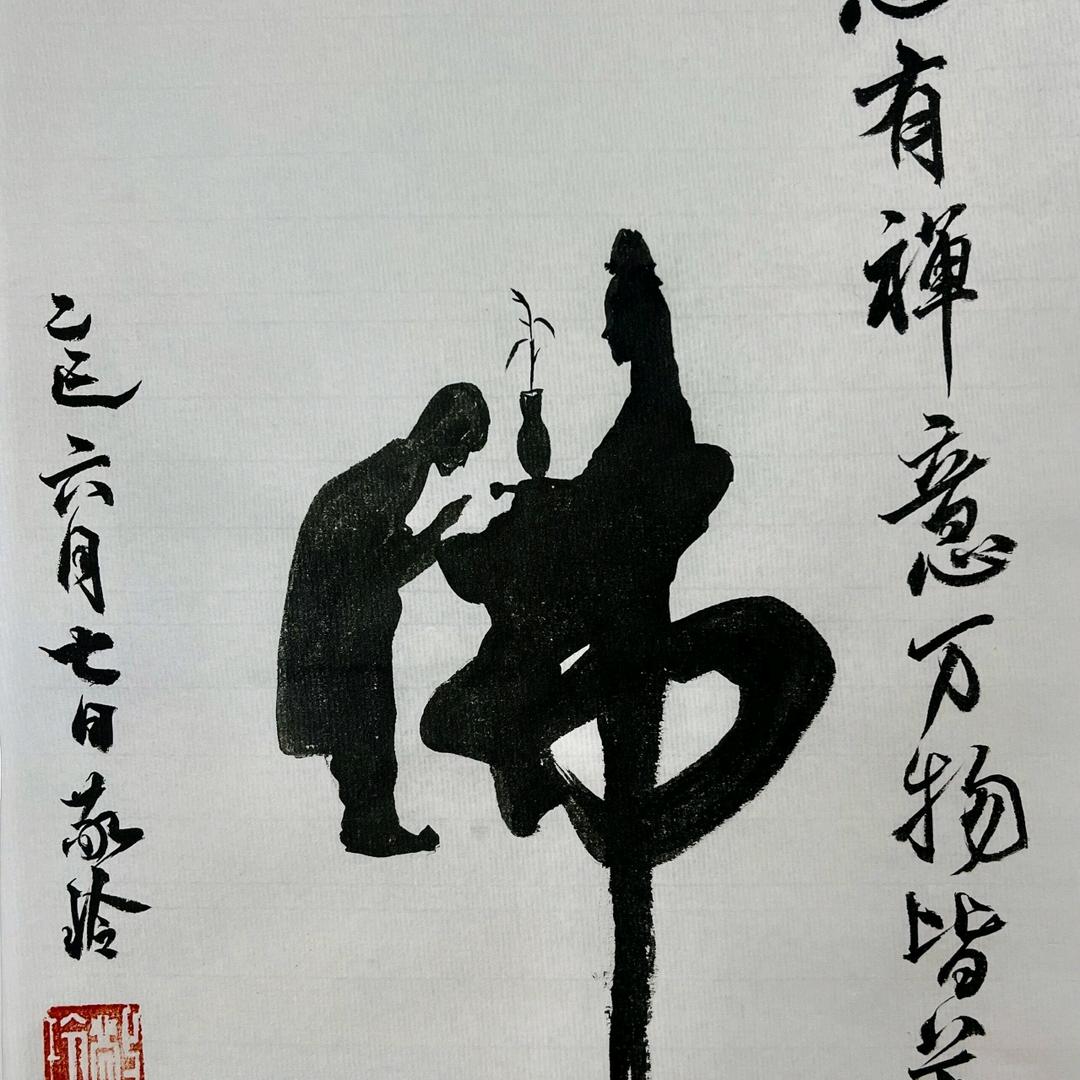 有禪意万物皆
佛
乙巳六月七日敬玲